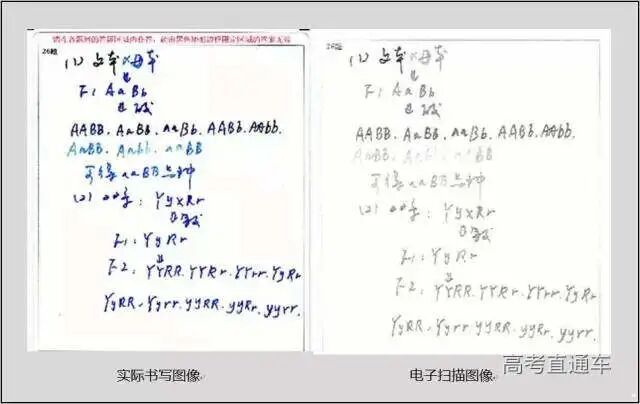 请在各题目的答题区域内作答,超出黑色矩形边框限定区域的答案无效
26题
(1) 父本 × 母本
F1 AaBb
AABB. AaBb. aaBb. AABb. AAbb.
AaBB. Aabb. aaBB
可得 aaBB 品种
(2) : YyxRr
F1: YyRr
F2: YYRR. YYRr. YYrr. YyRr
YyRR. Yyrr. yyRR. yyRr. yyrr.
26题
(1) 父本 × 母本
F1 AaBb
AABB. AaBb. aaBb. AABb. AAbb.
AaBB. Aabb. aaBB
可得 aaBB 品种
(2) : YyxRr
F1: YyRr
F2: YYRR. YYRr. YYrr. YyRr
YyRR. Yyrr. yyRR. yyRr. yyrr.
实际书写图像
电子扫描图像
高考直通车